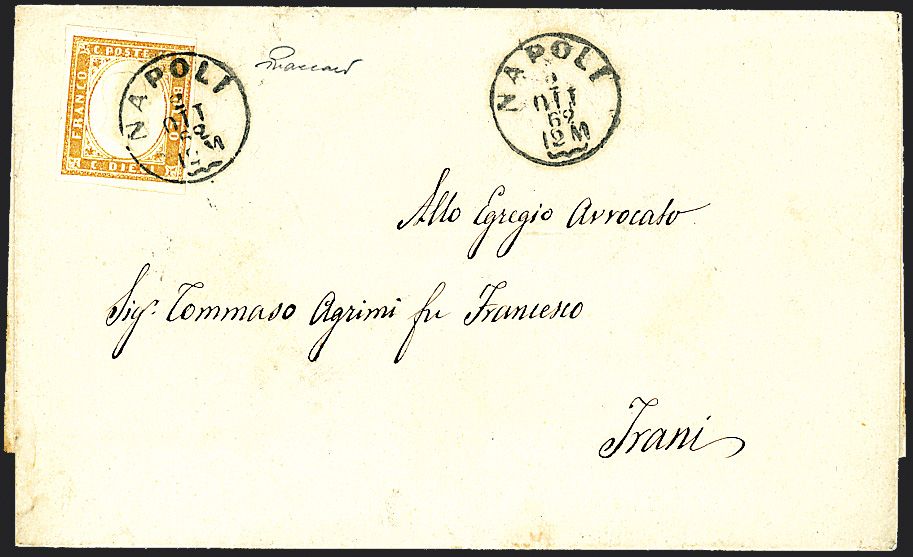 C. POSTE
FRANCO
C. DIECI
NAPOLI
2
OTT
62
12 M
NAPOLI
2
OTT
62
12 M
Allo Egregio Avvocato
Sigr. Tommaso Agrimi fu Francesco
Trani